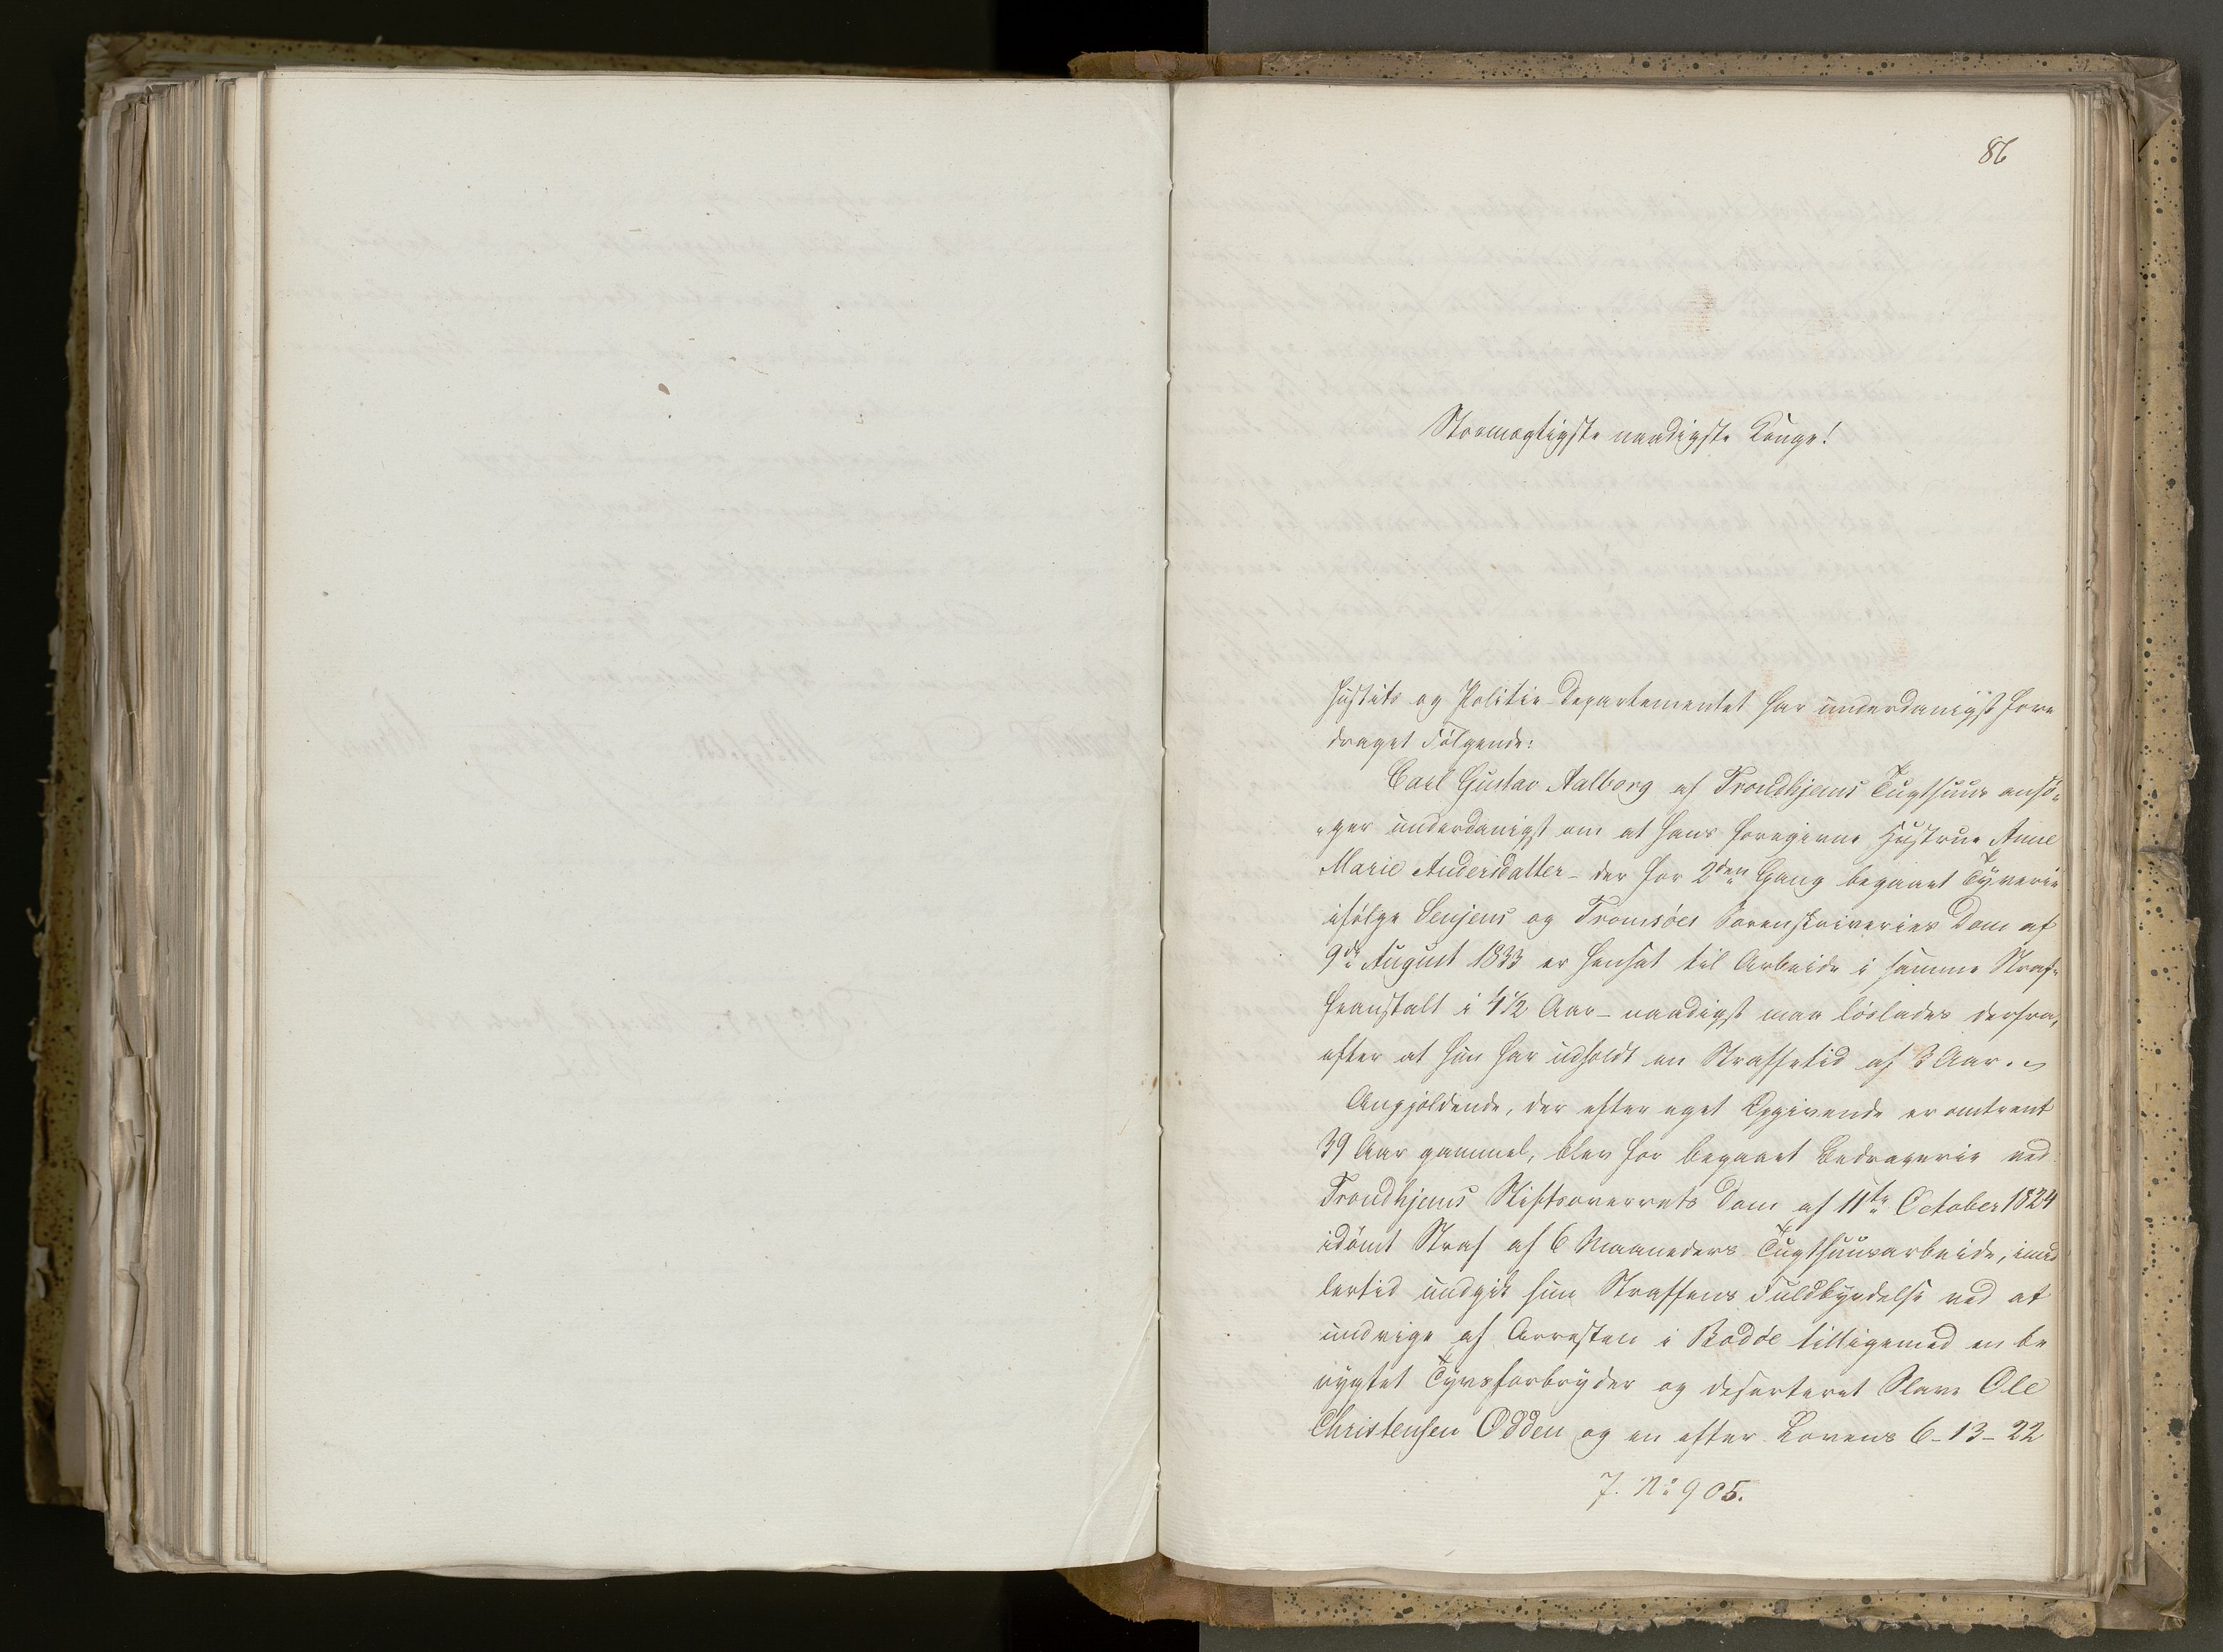 86
Stormægtigste naadigste Konge!
Justits og Politie-Departementet har underdanigst fore
draget Følgende:
Carl Gustav Aalborg af Trondhjems Tugthuus ansø„
„ger underdanigst om at hans foregivne Hustrue Anne
Marie Andersdatter – der for 2den Gang begaaet Tyverie
ifølge Senjens og Tromsöes Sorenskriveries Dom af
9de August 1833 er hensat til Arbeide i samme Straf„
feanstalt i 4½ Aar – naadigst maa löslades derfra,
efter at hun har udholdt en Straffetid af 3 Aar.
Angjældende, der efter eget Opgivende er omtrent
39 Aar gammel, blev for begaaet Bedragerie ved
Trondhjems Stiftsoverrets Dom af 11te October 1824
idömt Straf af 6 Maaneders Tugthuusarbeide, imid
lertid undgik hun Straffens Fuldbyrdelse ved at
undvige af Arresten i Bodöe tilligemed en be
rygtet Tyvsforbryder og deserteret Slave Ole
Christensen Odden og en efter Lovens 6–13–22
J. No 905.